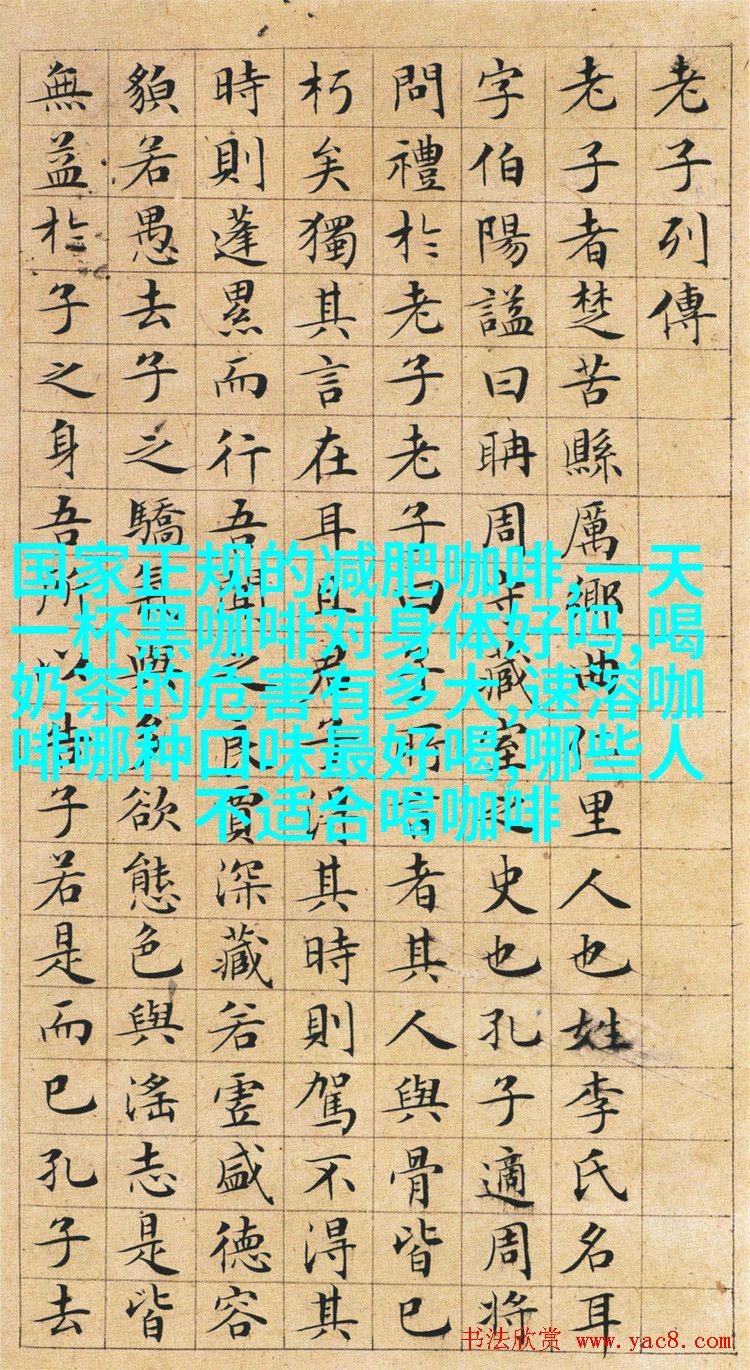 老子列傳
老子者楚苦縣厲鄉曲仁里人也姓李氏名耳
字伯陽謚曰聃周守藏室之史也孔子適周將
問禮於老子老子曰子所言者其人與骨皆已
朽矣獨其言在耳且君子得其時則駕不得其
時則蓬累而行吾聞之良賈深藏若虛盛德容
貌若愚去子之驕氣與多欲態色與淫志是皆
無益於子之身吾所以告子若是而已孔子去
国家正规的减肥咖啡,一天
一杯黑咖啡对身体好吗,喝
奶茶的危害有多大,速溶咖
啡哪种口味最好喝,哪些人
不适合喝咖啡
书法欣赏 www.yac8.com